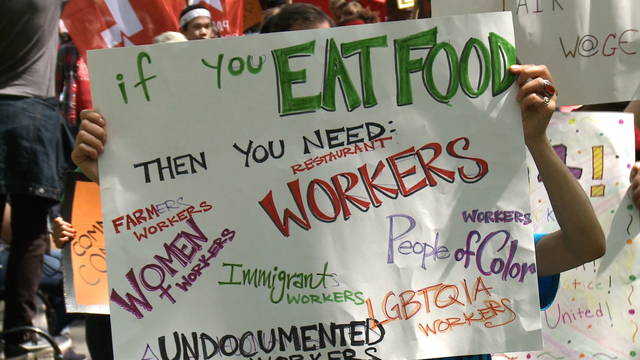 if you EAT FOOD
THEN YOU NEED:
RESTAURANT
WORKERS
FARMERS
WORKERS
WOMEN
T WORKERS
Immigrants
WORKERS
WORKERS
People of Color
LGBTQIA
WORKERS
UNDOCUMENTED
WORKERS
AIR
W@GE
!
United!